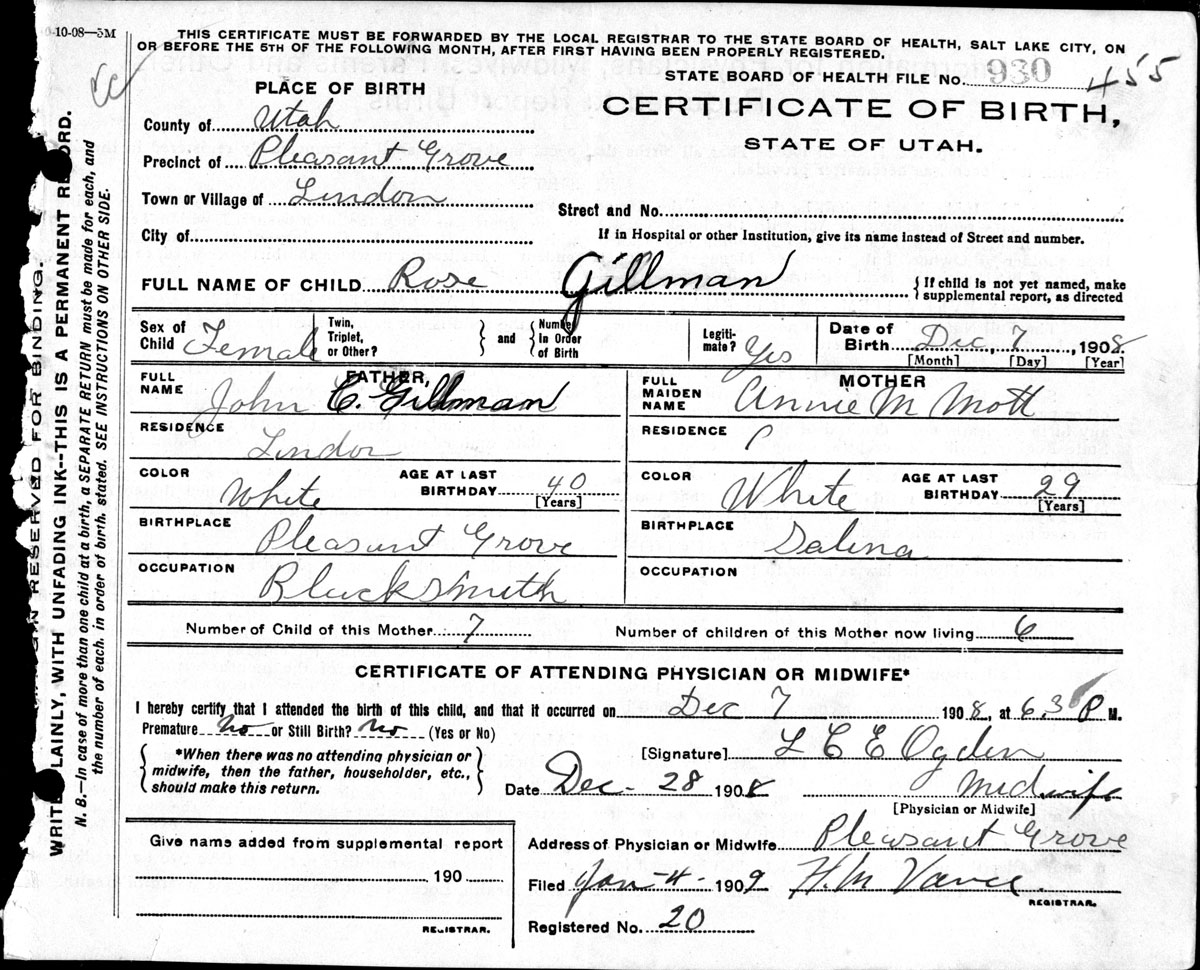 0-10-08—5M
THIS CERTIFICATE MUST BE FORWARDED BY THE LOCAL REGISTRAR TO THE STATE BOARD OF HEALTH, SALT LAKE CITY, ON
OR BEFORE THE 5TH OF THE FOLLOWING MONTH, AFTER FIRST HAVING BEEN PROPERLY REGISTERED.
STATE BOARD OF HEALTH FILE No. 930 455
PLACE OF BIRTH
CERTIFICATE OF BIRTH,
STATE OF UTAH.
County of Utah
Precinct of Pleasant Grove
Town or Village of Lindon
Street and No.
City of
If in Hospital or other Institution, give its name instead of Street and number.
FULL NAME OF CHILD Rose Gillman
{ If child is not yet named, make
supplemental report, as directed
Sex of Child Female
Twin, Triplet, or Other? } and { Number in Order of Birth
Legiti-mate? Yes
Date of Birth Dec, 7, 1908.
[Month] [Day] [Year]
FATHER,
FULL NAME John C. Gillman
MOTHER
FULL MAIDEN NAME Annie M Mott
RESIDENCE Lindon
RESIDENCE
COLOR White
AGE AT LAST BIRTHDAY 40 [Years]
COLOR White
AGE AT LAST BIRTHDAY 29 [Years]
BIRTHPLACE Pleasant Grove
BIRTHPLACE Salina
OCCUPATION Blacksmith
OCCUPATION
Number of Child of this Mother 7
Number of children of this Mother now living 6
CERTIFICATE OF ATTENDING PHYSICIAN OR MIDWIFE*
I hereby certify that I attended the birth of this child, and that it occurred on Dec 7 1908, at 6.30 P M.
Premature No or Still Birth? No (Yes or No)
{ *When there was no attending physician or
midwife, then the father, householder, etc.,
should make this return. }
[Signature] L C E Ogden
Date Dec- 28 1908
Midwife
[Physician or Midwife]
Give name added from supplemental report
190
REGISTRAR.
Address of Physician or Midwife Pleasant Grove
Filed Jan-4- 1909 H.M Vance.
REGISTRAR.
Registered No. 20
MARGIN RESERVED FOR BINDING.
WRITE PLAINLY, WITH UNFADING INK--THIS IS A PERMANENT RECORD.
N. B.—In case of more than one child at a birth, a SEPARATE RETURN must be made for each, and
the number of each, in order of birth, stated. SEE INSTRUCTIONS ON OTHER SIDE.